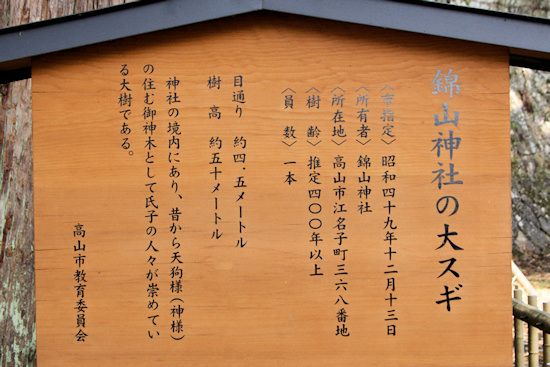 錦山神社の大スギ
〈市指定〉昭和四十九年十二月十三日
〈所有者〉錦山神社
〈所在地〉高山市江名子町三六八番地
〈樹　齢〉推定四〇〇年以上
〈員　数〉一本
目通り　約四・五メートル
樹　高　約五十メートル
神社の境内にあり、昔から天狗様（神様）
の住む御神木として氏子の人々が崇めてい
る大樹である。
高山市教育委員会